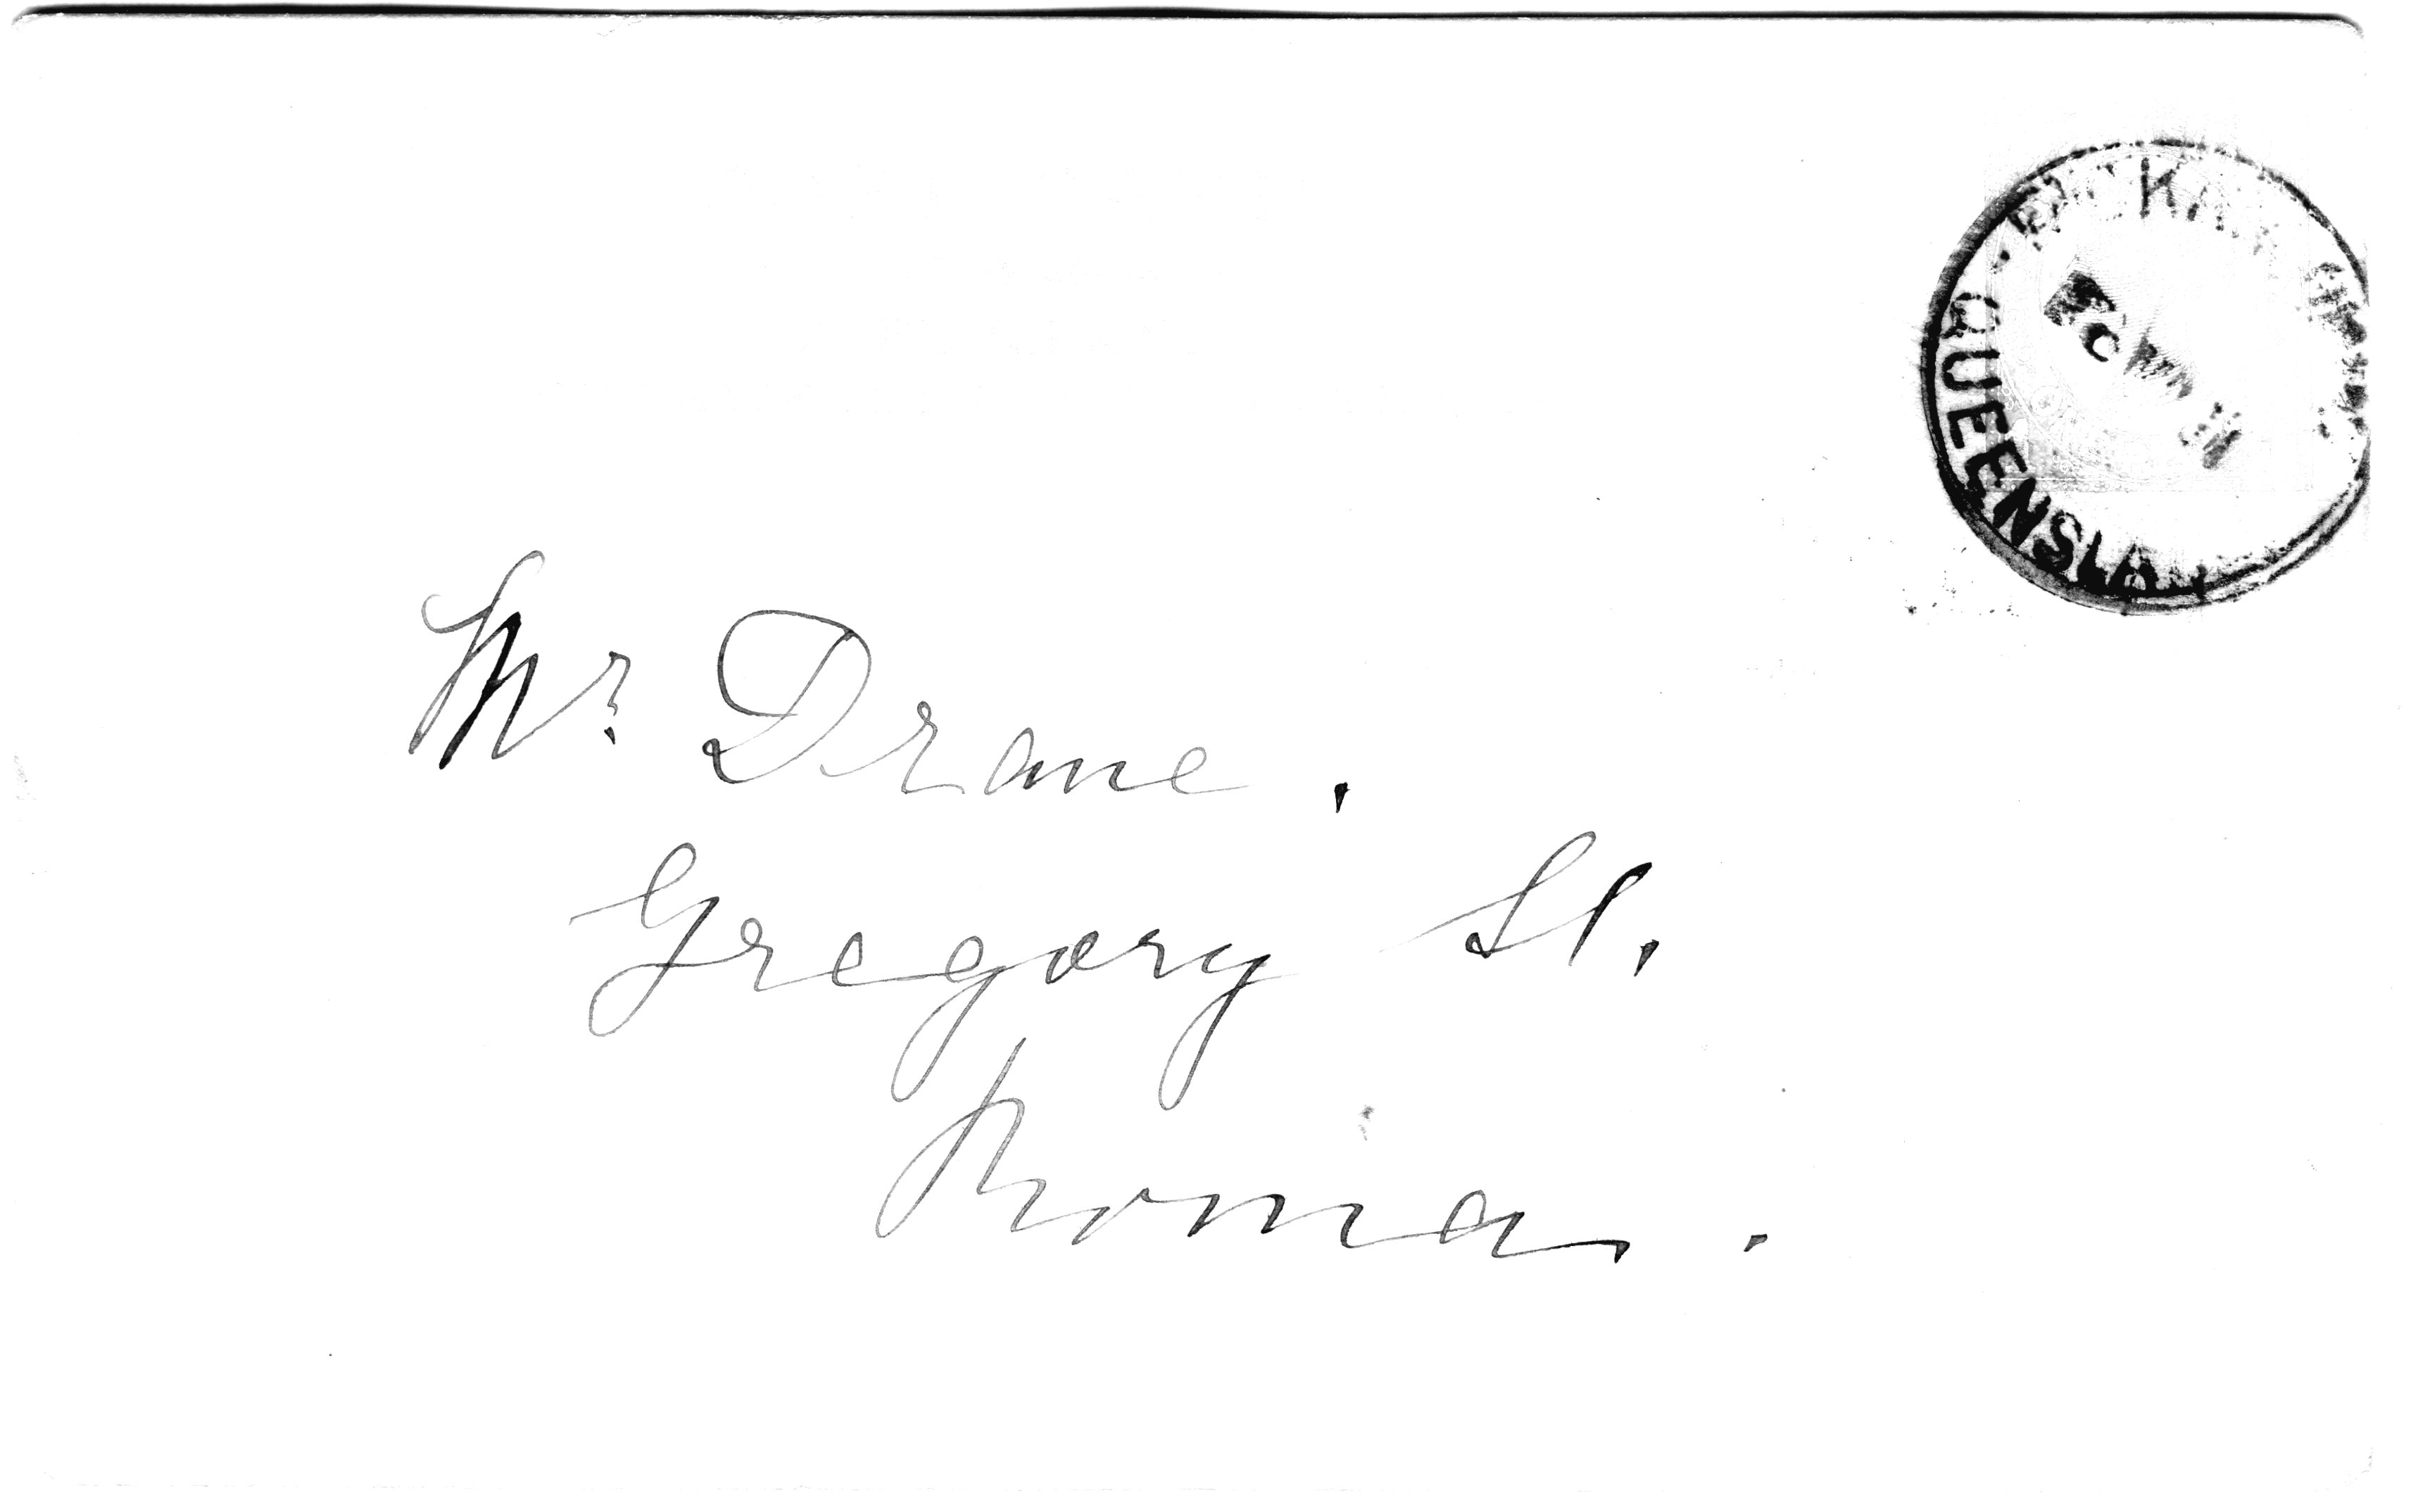 QUEENSLA
Mr. Drane.
Gregory St.
Roma.